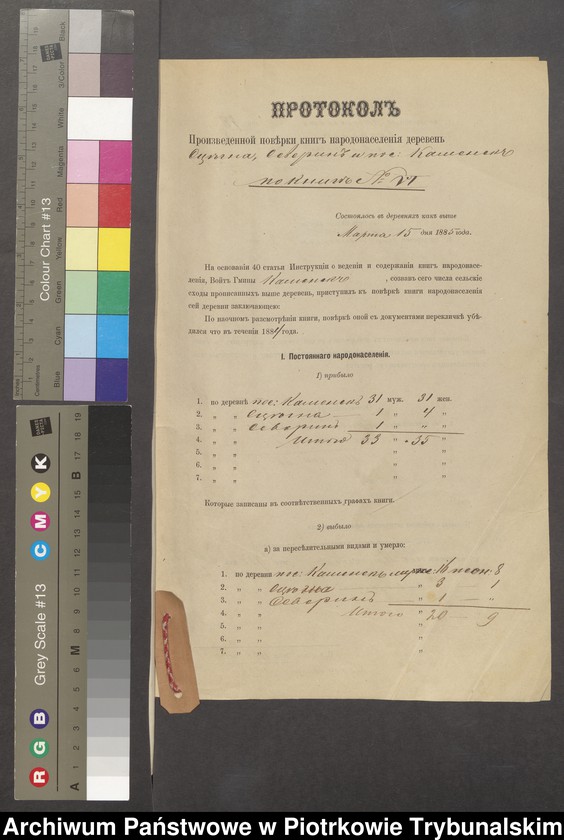 ПРОТОКОЛЪ
Произведенной повѣрки книгъ народонаселенія деревень
и пос: Каменскъ
по книгѣ № VI
Состоялось въ деревняхъ какъ выше
Марта 15 дня 1885 года.
На основаніи 40 статьи Инструкціи о веденіи и содержаніи книгъ народонасе-
ленія, Войтъ Гмины Каменскъ, созвавъ сего числа сельскіе
сходы прописанныхъ выше деревень, приступилъ къ повѣркѣ книги народонаселенія
сей деревни заключающее:
По наочномъ разсмотрѣніи книги, повѣркѣ оной съ документами перекличкѣ убѣ-
дился что въ теченіи 1884 года.
I. Постояннаго народонаселенія.
1) прибыло
1. по деревнѣ пос: Каменскъ 31 муж. 31 жен.
2. „ „ 1 „ 4 „
3. „ „ 1 „ „ „
4. „ „ Итого 33 „ 35 „
5. „ „ „ „
6. „ „ „ „
7. „ „ „ „
Которые записаны въ соотвѣтственныхъ графахъ книги.
2) выбыло
а) за переселительными видами и умерло:
1. по деревни пос: Каменскъ 16 8
2. „ „ „ 3 1
3. „ „ „ 1 „
4. „ „ Итого „ 20 9
5. „ „ „
6. „ „ „
7. „ „ „
Colour Chart #13
Black
3/Color
White
Magenta
Red
Yellow
Green
Cyan
Blue
Inches
Centimetres
Grey Scale #13
R G B
C M Y K
A 1 2 3 4 5 6 M 8 9 10 11 12 13 14 15 B 17 18 19
Archiwum Państwowe w Piotrkowie Trybunalskim